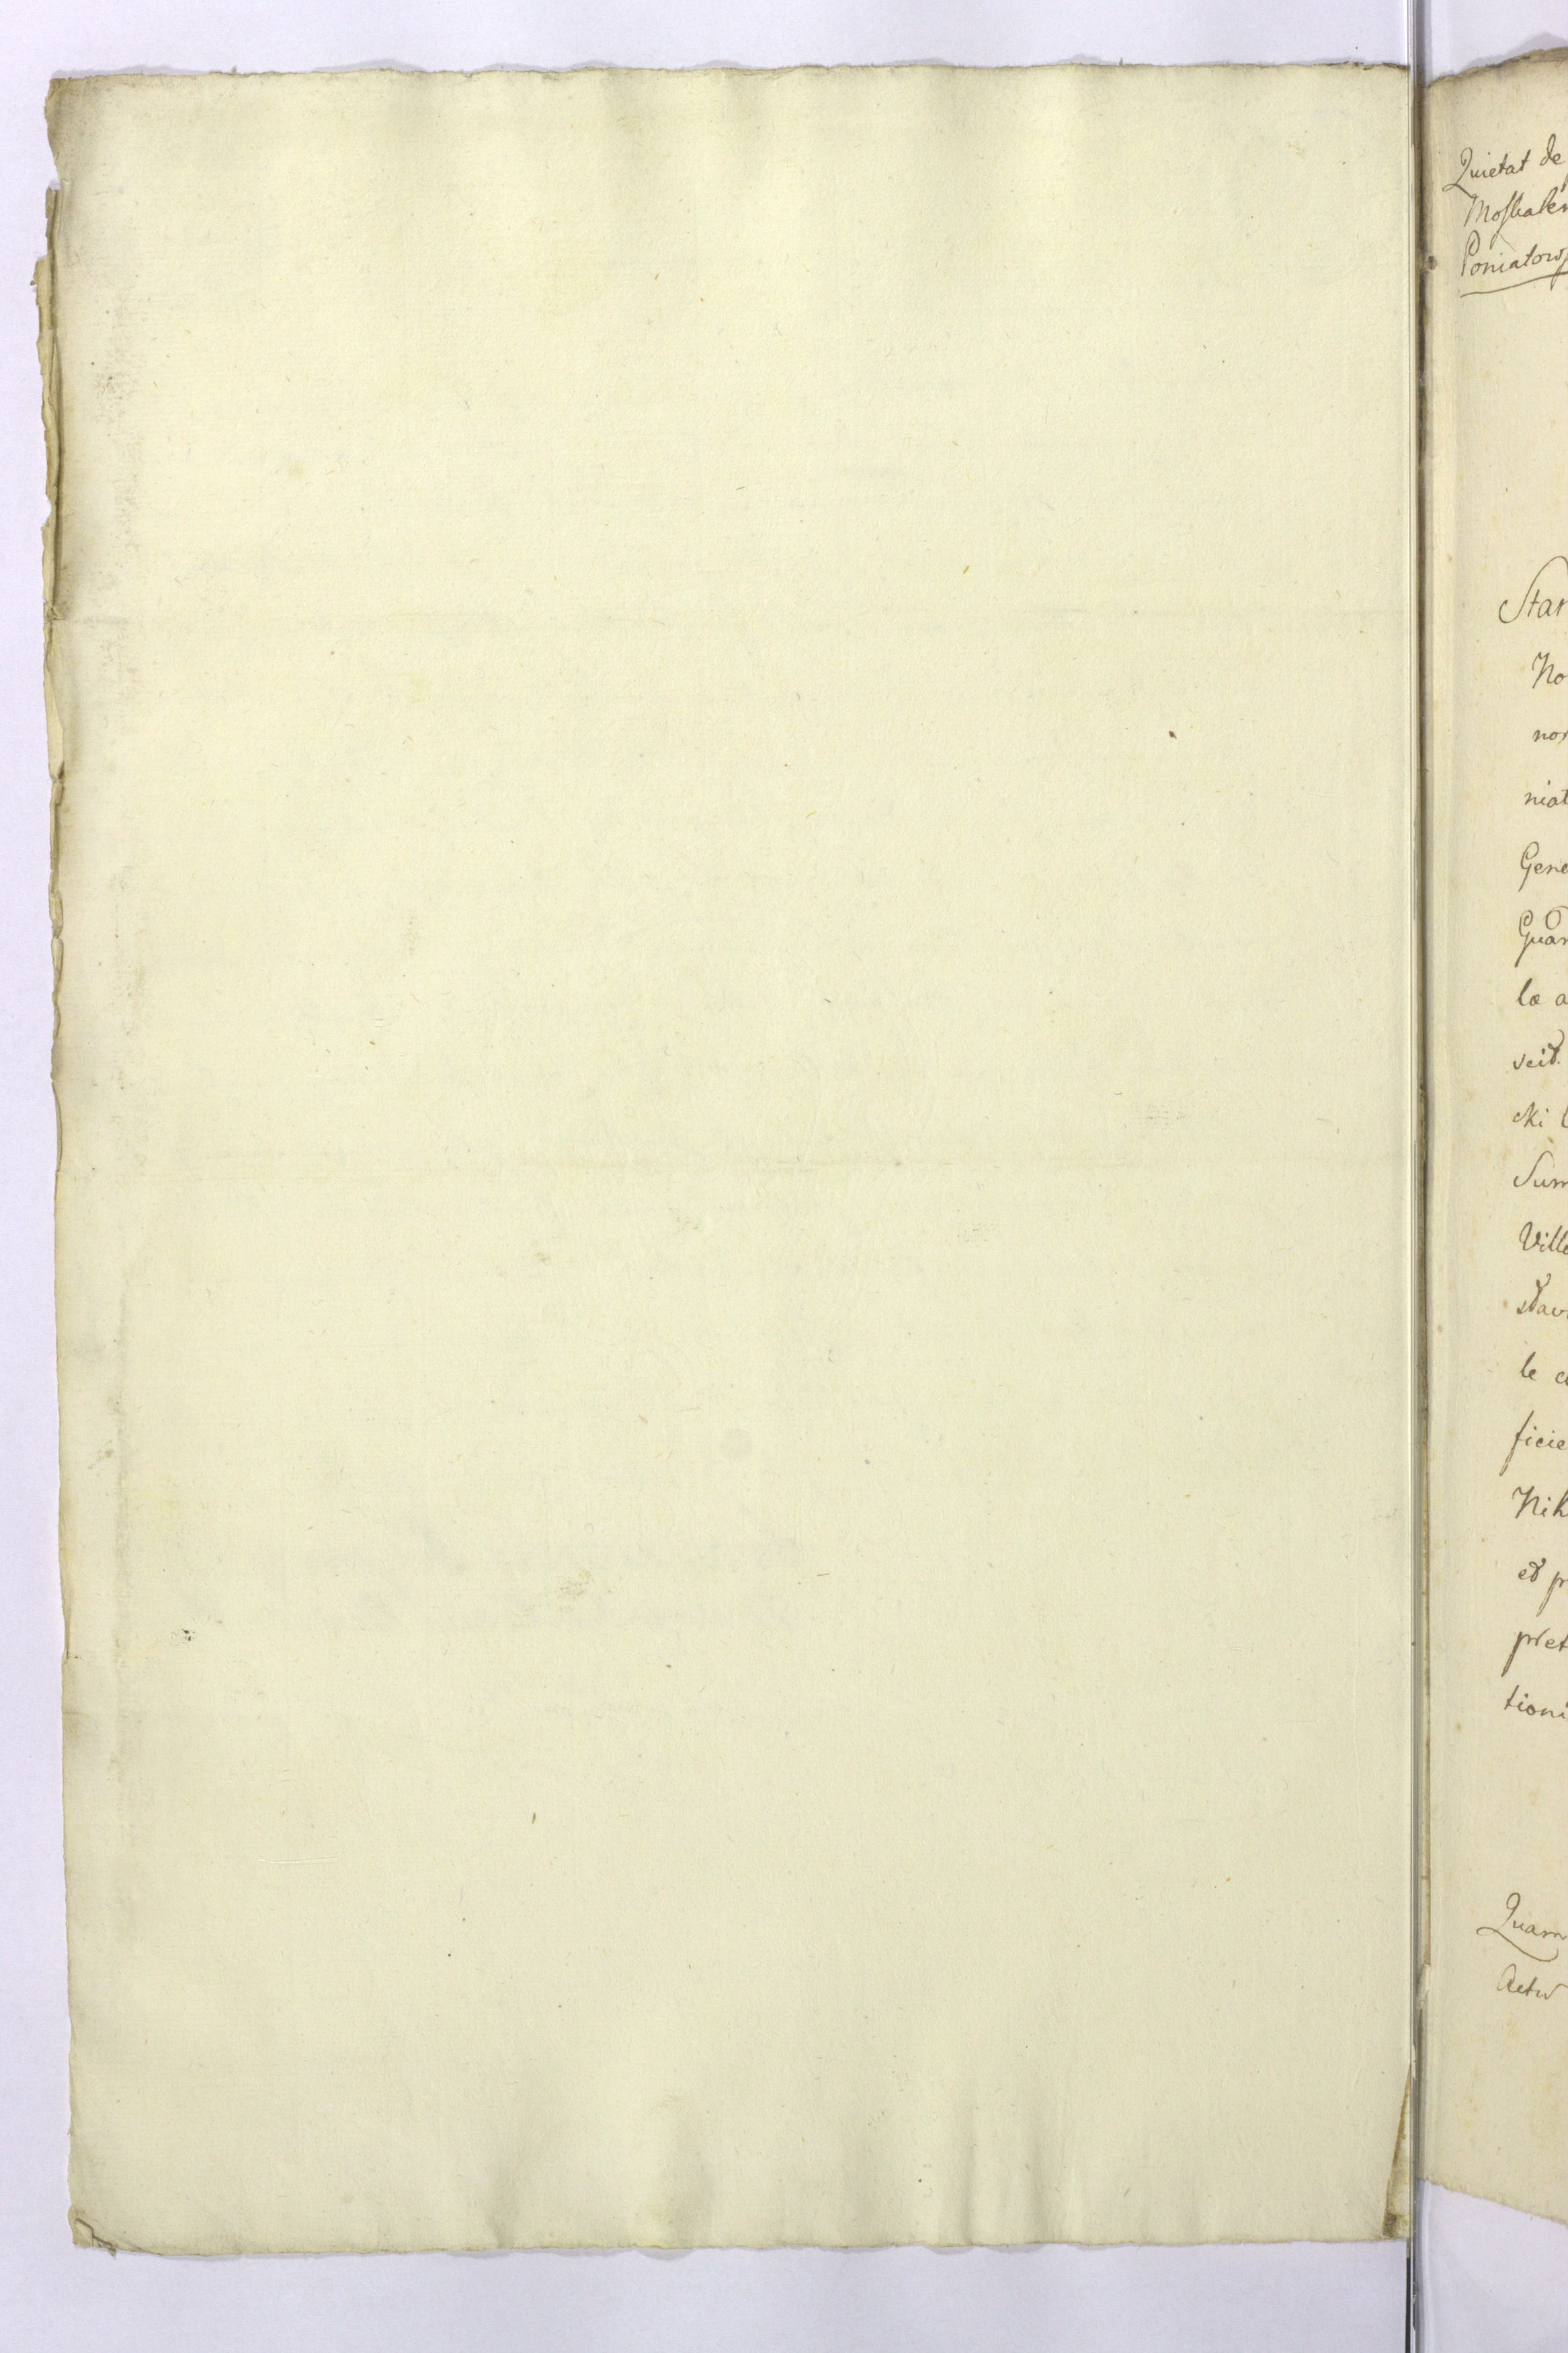 Quietat de
Moskalen
Poniatows
Star
No
non
niat
Gene
Guar
læ a
veit
cki
Sum
Ville
stav
le a
ficie
Nih
et p
præt
tioni
Quam
Actu